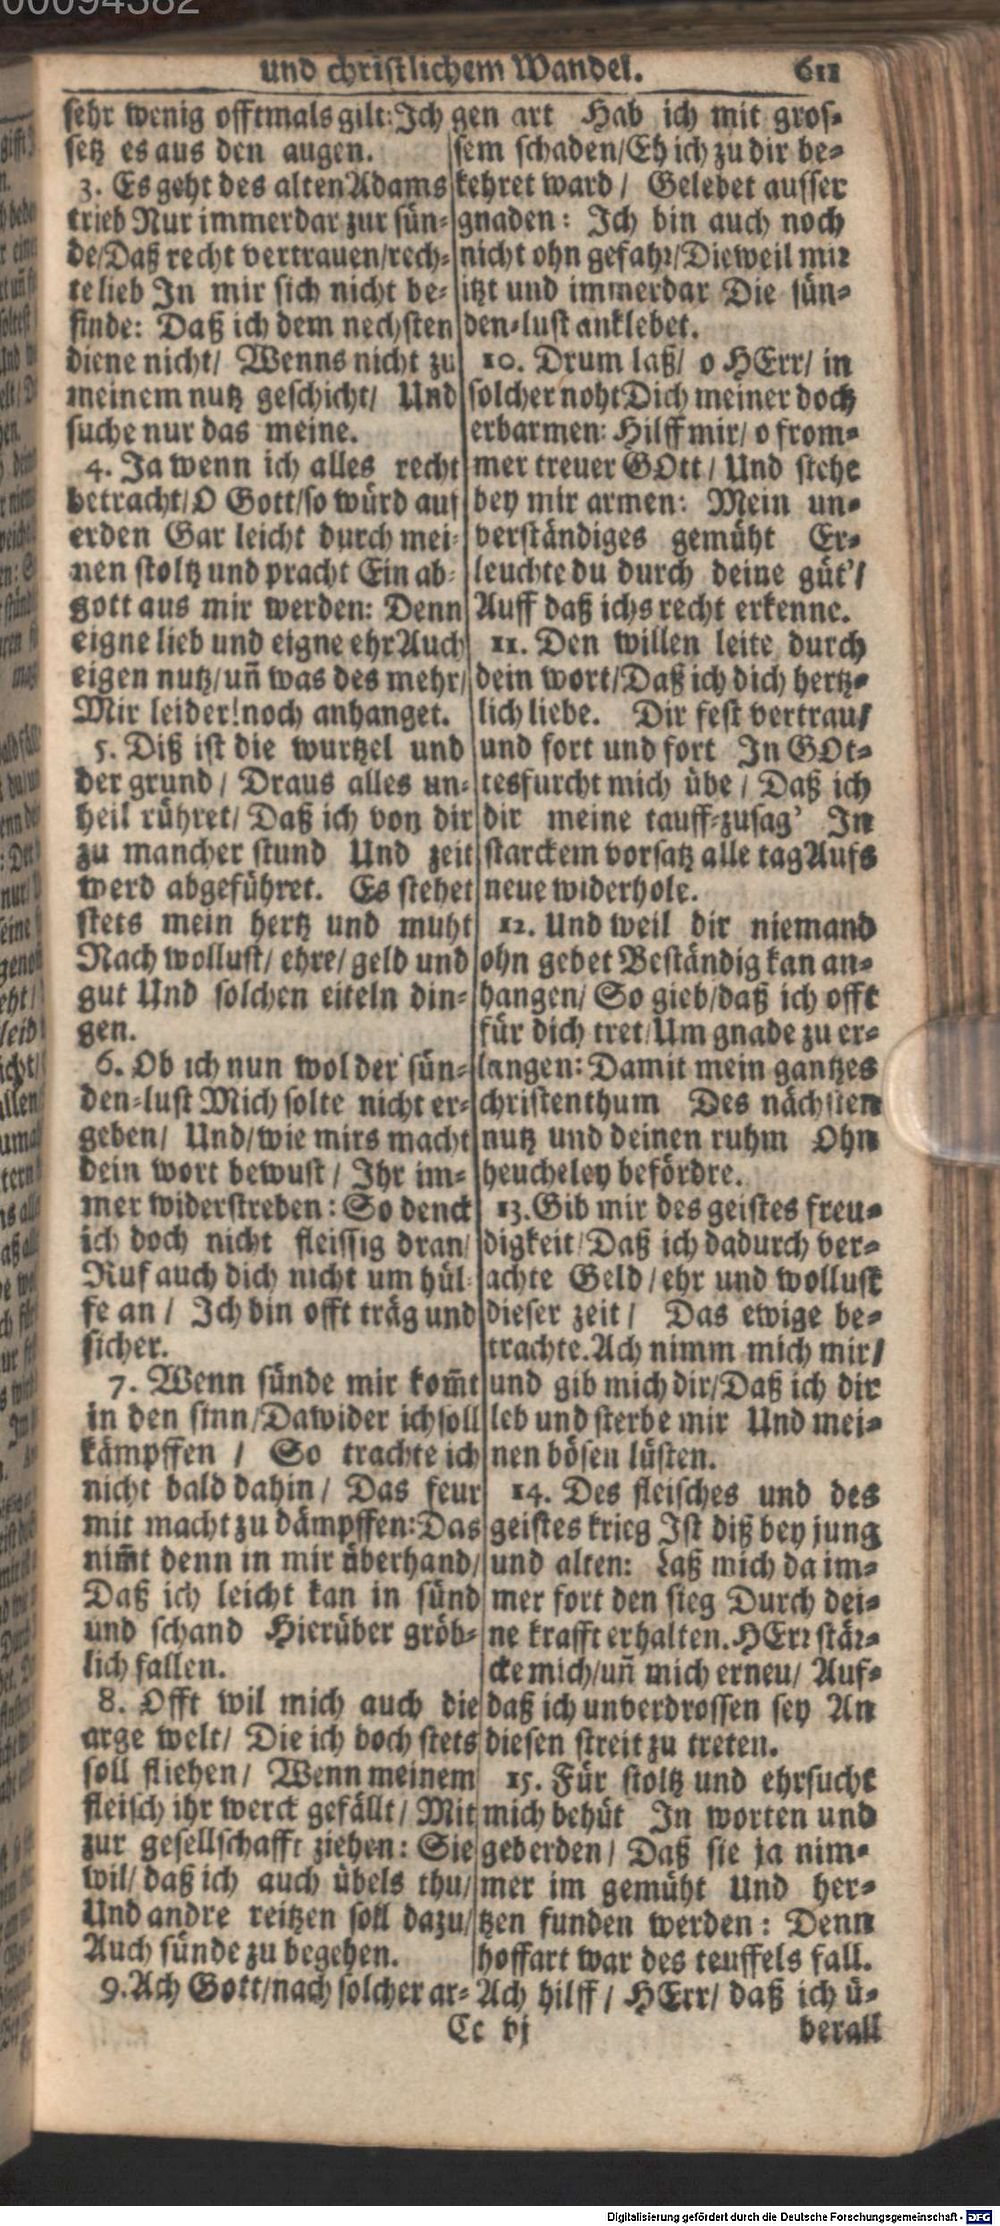 00094382
und christlichem Wandel. 611
sehr wenig offtmals gilt: Ich
setz es aus den augen.
3. Es geht des alten Adams
trieb Nur immerdar zur sün-
de/Daß recht vertrauen/rech-
te lieb In mir sich nicht be-
finde: Daß ich dem nechsten
diene nicht/ Wenns nicht zu
meinem nutz geschicht/ Und
suche nur das meine.
4. Ja wenn ich alles recht
betracht/O Gott/so würd auf
erden Gar leicht durch mei-
nen stoltz und pracht Ein ab-
gott aus mir werden: Denn
eigne lieb und eigne ehr Auch
eigen nutz/uñ was des mehr/
Mir leider! noch anhanget.
5. Diß ist die wurtzel und
der grund/ Draus alles un-
heil rühret/ Daß ich von dir
zu mancher stund Und zeit
werd abgeführet. Es stehet
stets mein hertz und muht
Nach wollust/ ehre/ geld und
gut Und solchen eiteln din-
gen.
6. Ob ich nun wol der sün-
den-lust Mich solte nicht er-
geben/ Und/wie mirs macht
dein wort bewust/ Ihr im-
mer widerstreben: So denck
ich doch nicht fleissig dran/
Ruf auch dich nicht um hül-
fe an/ Ich bin offt träg und
sicher.
7. Wenn sünde mir kom̃t
in den sinn/Dawider ich soll
kämpffen/ So trachte ich
nicht bald dahin/ Das feur
mit macht zu dämpffen: Das
nim̃t denn in mir überhand/
Daß ich leicht kan in sünd
und schand Hierüber gröb-
lich fallen.
8. Offt wil mich auch die
arge welt/ Die ich doch stets
soll fliehen/ Wenn meinem
fleisch ihr werck gefällt/ Mit
zur gesellschafft ziehen: Sie
wil/ daß ich auch übels thu/
Und andre reitzen soll dazu/
Auch sünde zu begehen.
9. Ach Gott/nach solcher ar-
gen art Hab ich mit gros-
sem schaden/Eh ich zu dir be-
kehret ward/ Gelebet ausser
gnaden: Ich bin auch noch
nicht ohn gefahr/Dieweil mir
itzt und immerdar Die sün-
den-lust anklebet.
10. Drum laß/ o HErr/ in
solcher noht Dich meiner doch
erbarmen: Hilff mir/ o from-
mer treuer GOtt/ Und stehe
bey mir armen: Mein un-
verständiges gemüht Er-
leuchte du durch deine güt'/
Auff daß ichs recht erkenne.
11. Den willen leite durch
dein wort/Daß ich dich hertz-
lich liebe. Dir fest vertrau/
und fort und fort In GOt-
tesfurcht mich übe/ Daß ich
dir meine tauff-zusag' In
starckem vorsatz alle tag Aufs
neue widerhole.
12. Und weil dir niemand
ohn gebet Beständig kan an-
hangen/ So gieb/daß ich offt
für dich tret/Um gnade zu er-
langen: Damit mein gantzes
christenthum Des nächsten
nutz und deinen ruhm Ohn
heucheley befördre.
13. Gib mir des geistes freu-
digkeit/Daß ich dadurch ver-
achte Geld/ehr und wollust
dieser zeit/ Das ewige be-
trachte. Ach nimm mich mir/
und gib mich dir/Daß ich dir
leb und sterbe mir Und mei-
nen bösen lüsten.
14. Des fleisches und des
geistes krieg Ist diß bey jung
und alten: Laß mich da im-
mer fort den sieg Durch dei-
ne krafft erhalten. HErr stär-
cke mich/uñ mich erneu/ Auf-
daß ich unverdrossen sey An
diesen streit zu treten.
15. Für stoltz und ehrsucht
mich behüt In worten und
geberden/ Daß sie ja nim-
mer im gemüht Und her-
tzen funden werden: Denn
hoffart war des teuffels fall.
Ach hilff/ HErr/ daß ich ü-
Cc vj berall
Digitalisierung gefördert durch die Deutsche Forschungsgemeinschaft - DFG